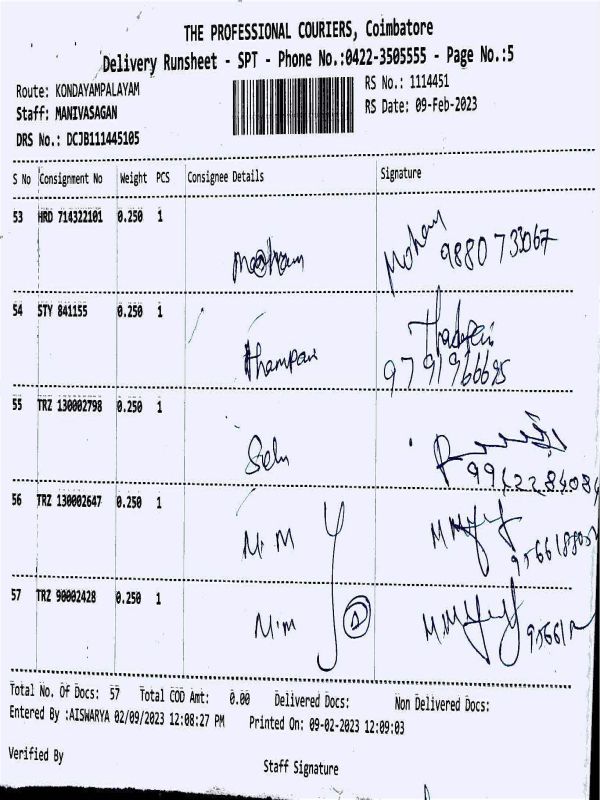 THE PROFESSIONAL COURIERS, Coimbatore
Delivery Runsheet - SPT - Phone No.:0422-3505555 - Page No.:5
Route: KONDAYAMPALAYAM
RS No.: 1114451
Staff: MANIVASAGAN
RS Date: 09-Feb-2023
DRS No.: DCJB111445105
S No Consignment No Weight PCS Consignee Details Signature
53 HRD 714322101 0.250 1
Mohan
9880733067
54 STY 841155 0.250 1
9791966695
55 TRZ 130002798 0.250 1
Selu
56 TRZ 130002647 0.250 1
M. M
57 TRZ 90002428 0.250 1
M.M
Total No. Of Docs: 57 Total COD Amt: 0.00 Delivered Docs: Non Delivered Docs:
Entered By :AISWARYA 02/09/2023 12:08:27 PM Printed On: 09-02-2023 12:09:03
Verified By
Staff Signature